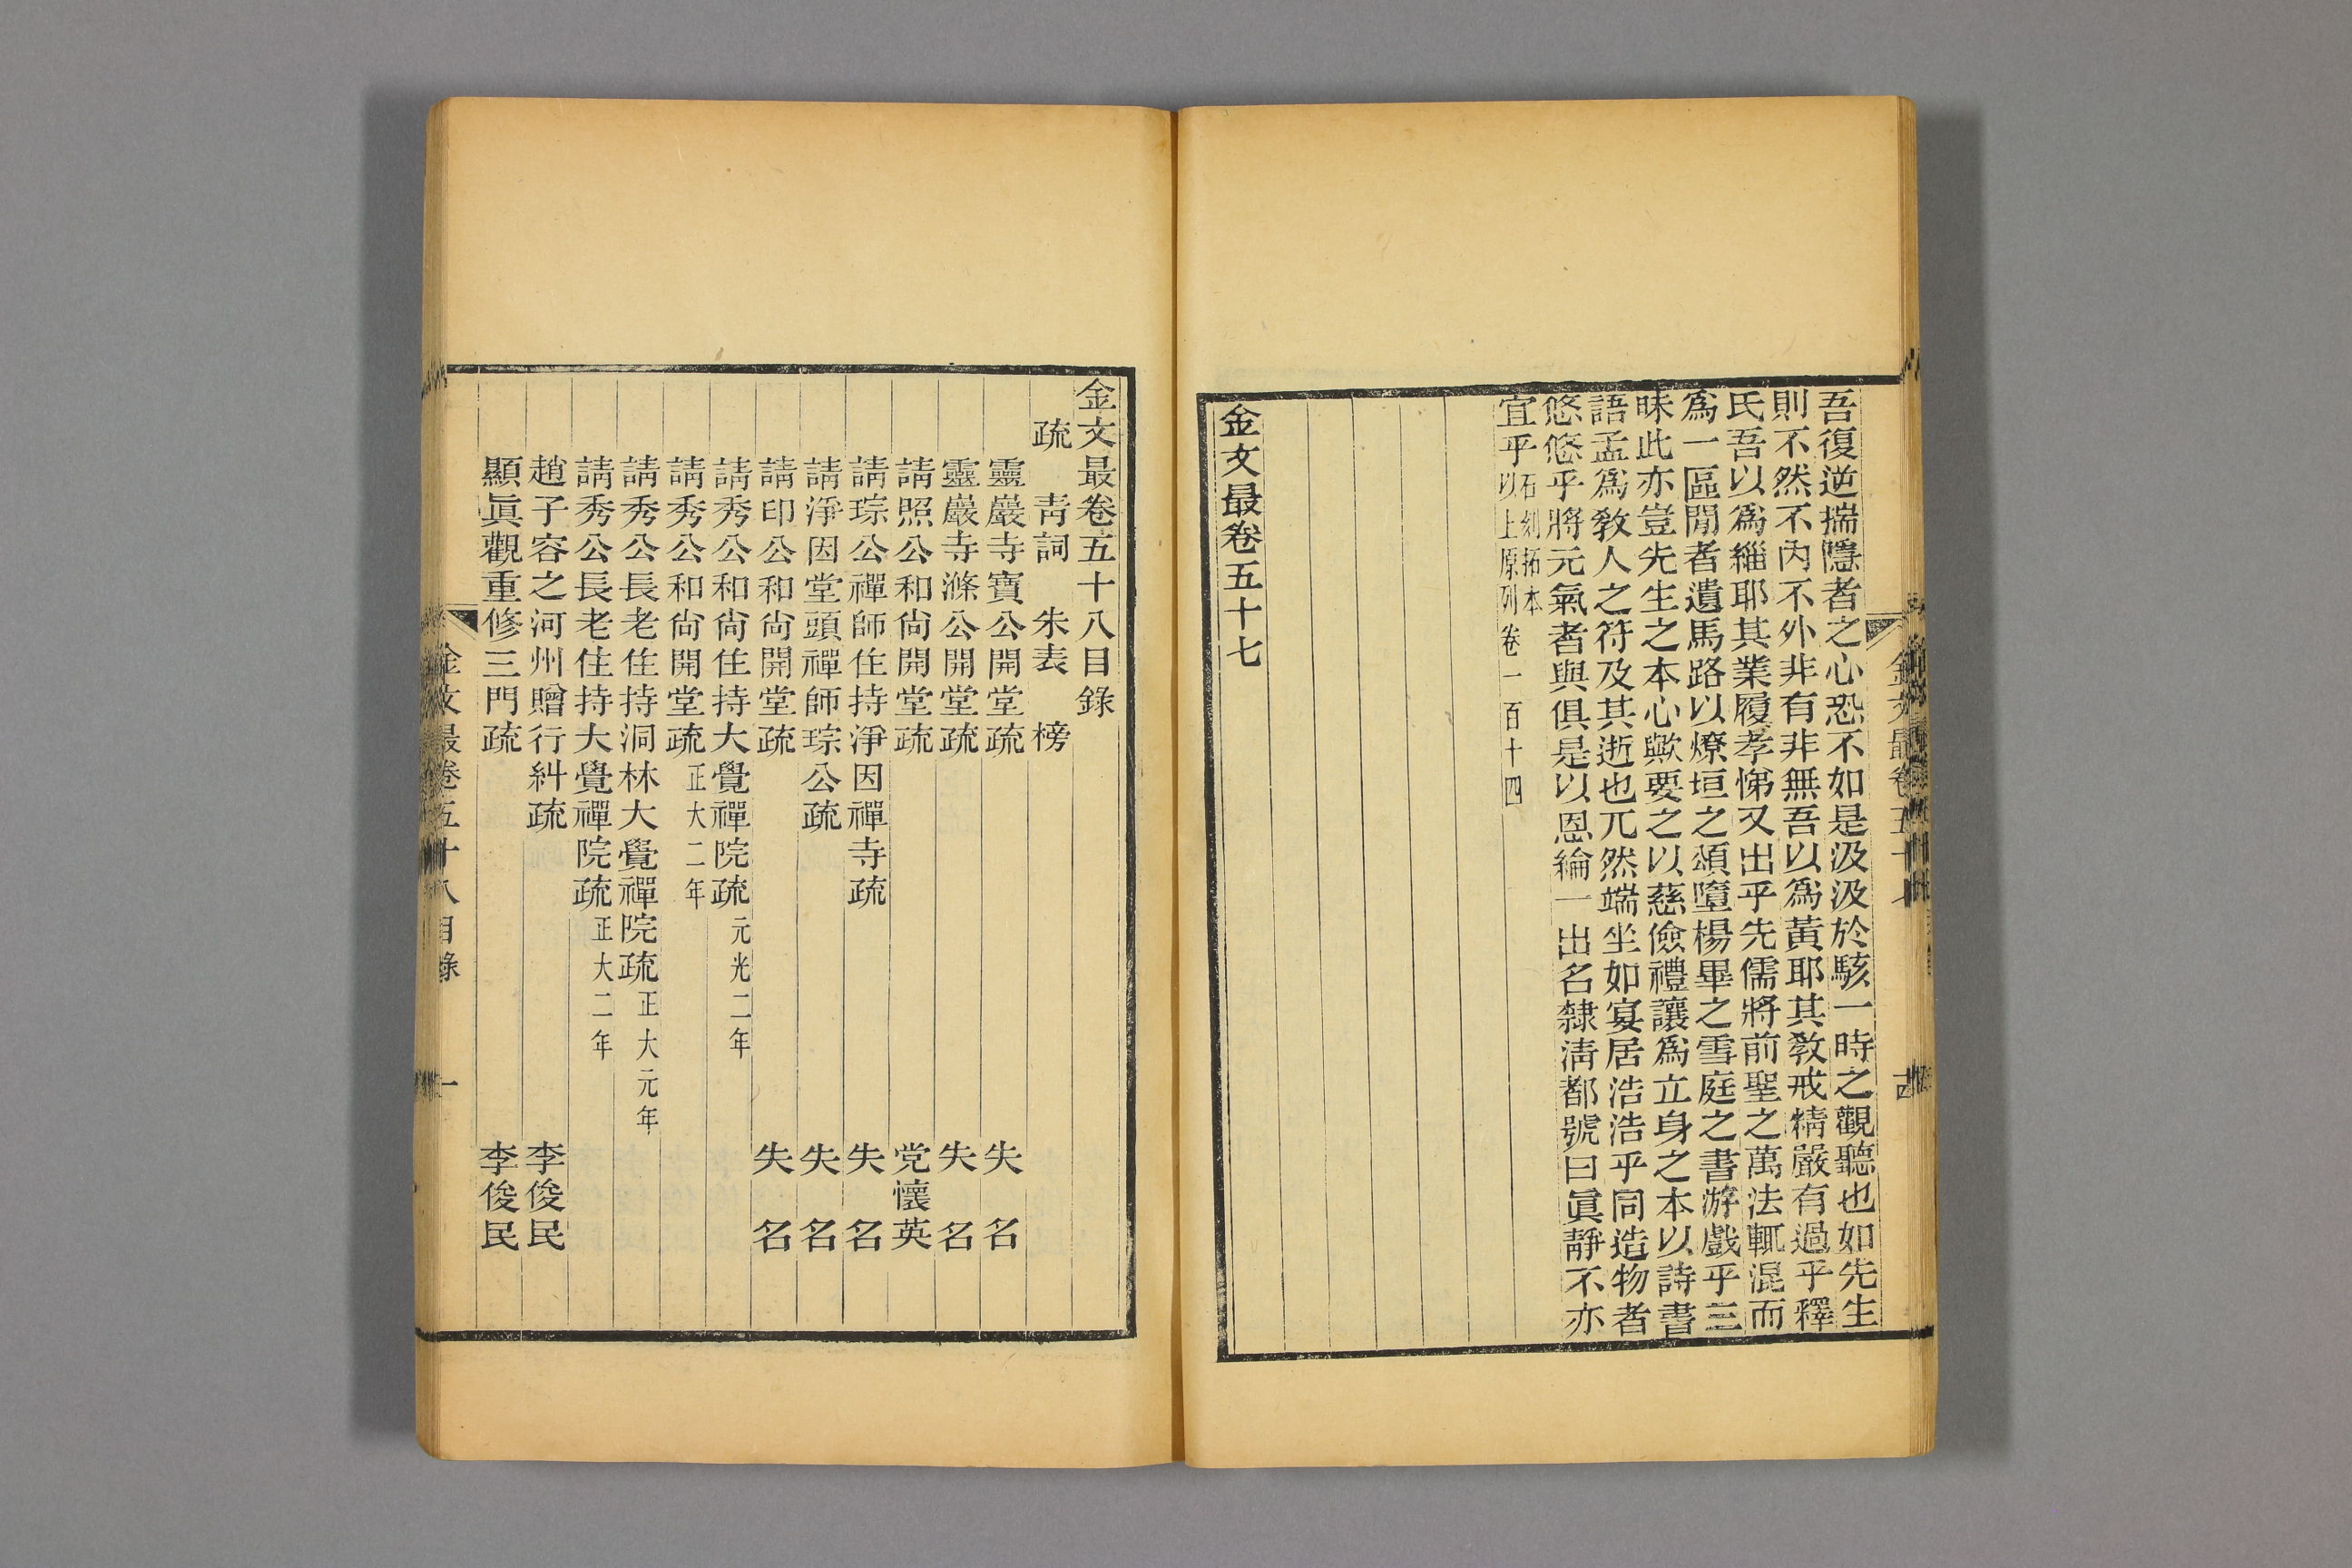 吾復逆揣隱者之心恐不如是汲汲於駭一時之觀聽也如先生
則不然不內不外非有非無吾以爲黃耶其敎戒精嚴有過乎釋
氏吾以爲緇耶其業履孝悌又出乎先儒將前聖之萬法輒混而
爲一區閒者遺馬路以燎垣之頌墮楊畢之雪庭之書游戲乎三
昧此亦豈先生之本心歟要之以慈儉禮讓爲立身之本以詩書
語孟爲敎人之符及其逝也兀然端坐如宴居浩浩乎同造物者
悠悠乎將元氣者與俱是以恩綸一出名隸淸都號曰眞靜不亦
宜乎石刻拓本以上原列卷一百十四
金文最卷五十七
金文最卷五十八目錄
疏 靑詞 朱表 榜
靈巖寺寶公開堂疏 失名
靈巖寺滌公開堂疏 失名
請照公和尙開堂疏 党懷英
請琮公禪師住持淨因禪寺疏 失名
請淨因堂頭禪師琮公疏 失名
請印公和尙開堂疏 失名
請秀公和尙住持大覺禪院疏元光二年
請秀公和尙開堂疏正大二年
請秀公長老住持洞林大覺禪院疏正大元年
請秀公長老住持大覺禪院疏正大二年
趙子容之河州贈行糾疏 李俊民
顯眞觀重修三門疏 李俊民
金文最卷五十八目錄 一